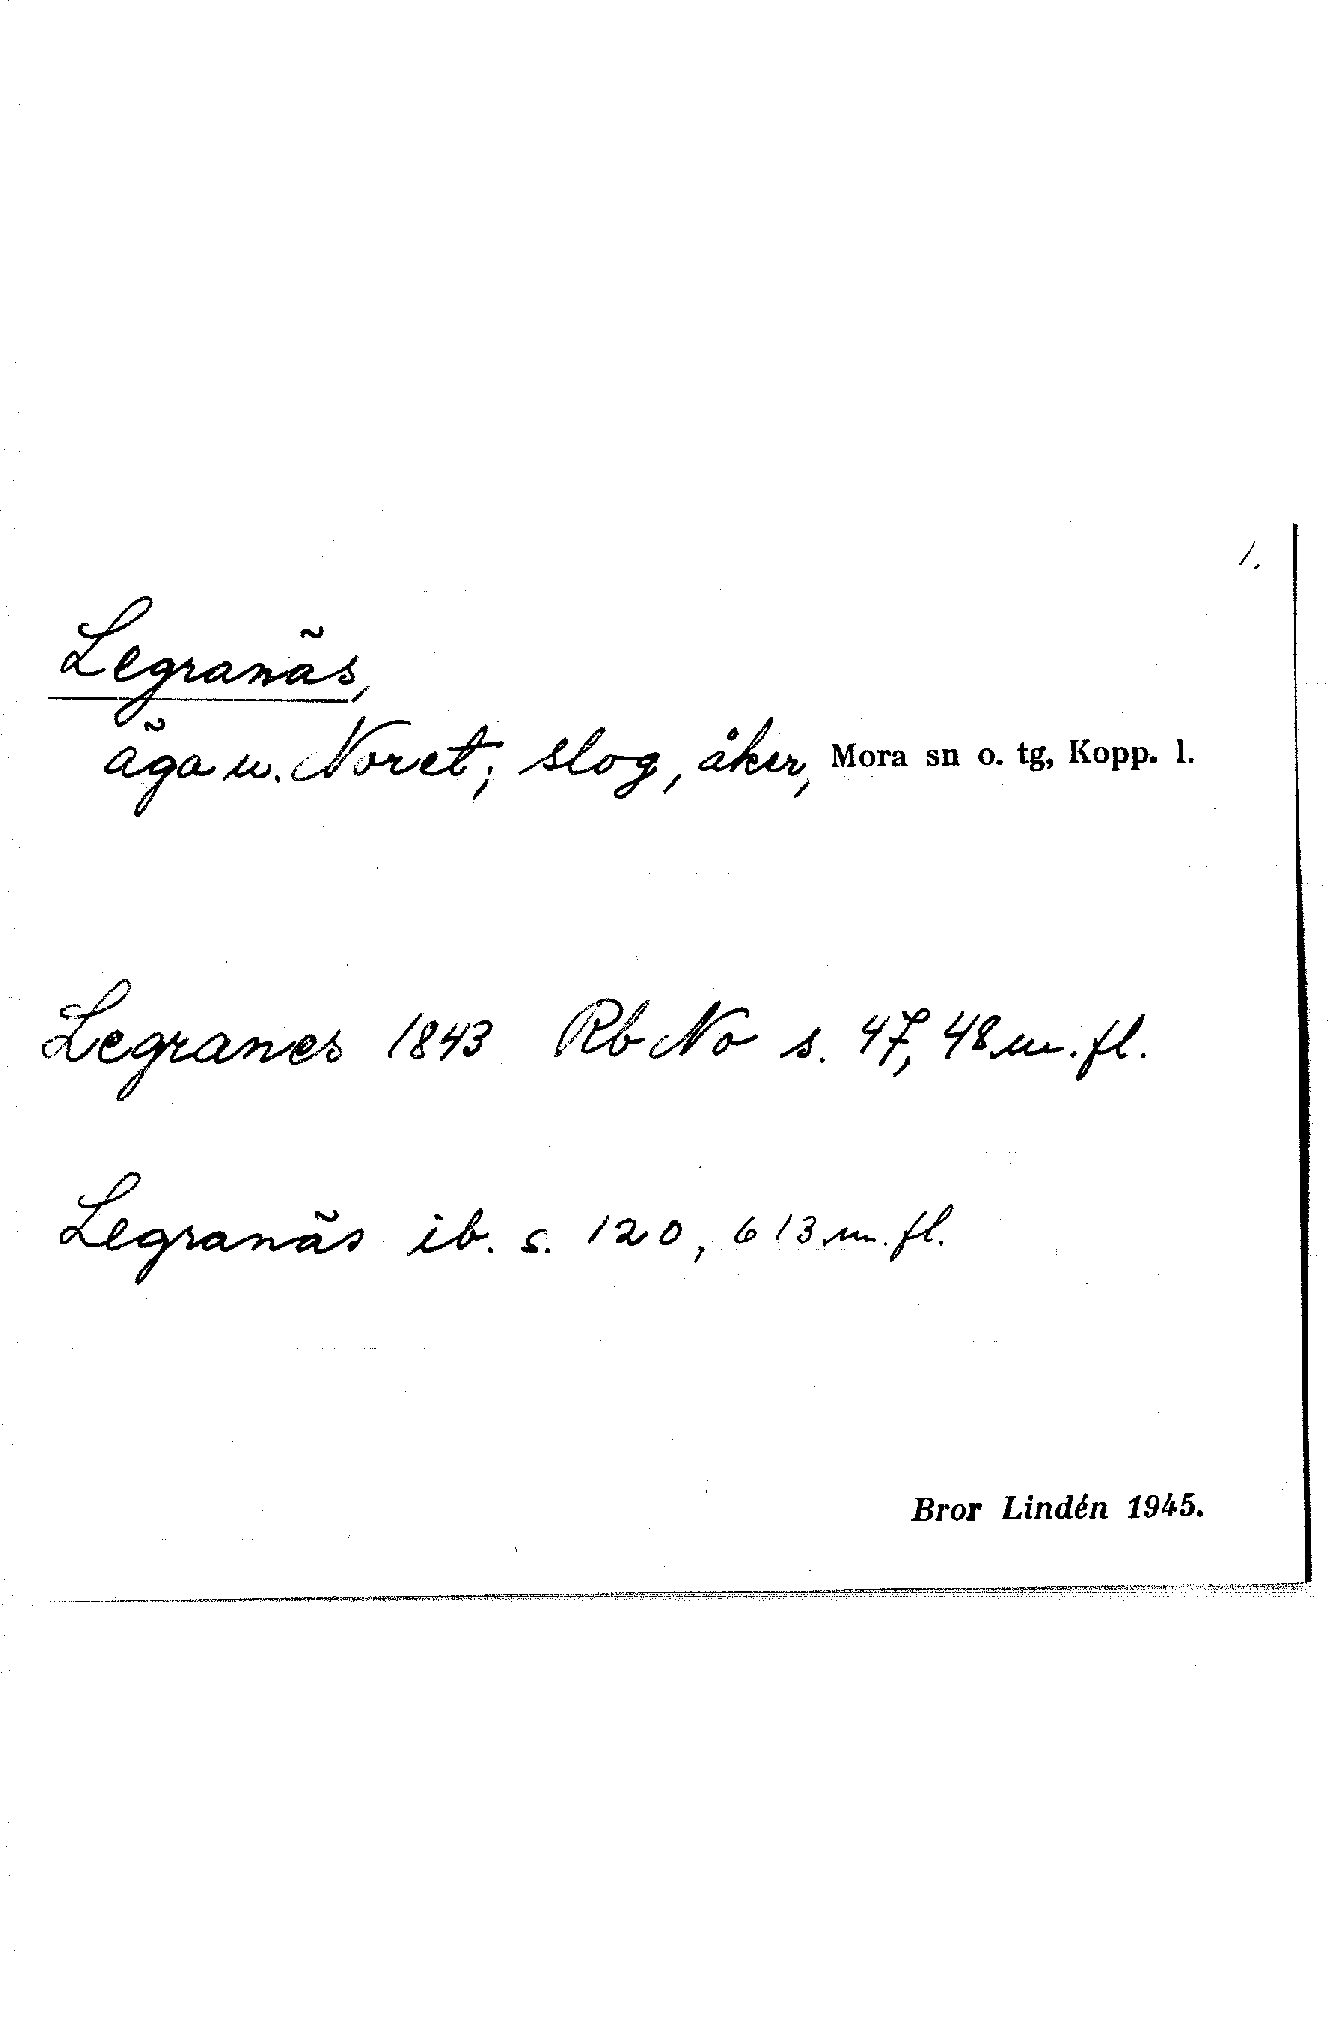 1.
Legranäs,
äga u. Noret; slog, åker, Mora sn o. tg, Kopp. l.
Legranes 1843 Rb No s. 47, 48 m. fl.
Legranäs ib. s. 120, 613 m. fl.
Bror Lindén 1945.